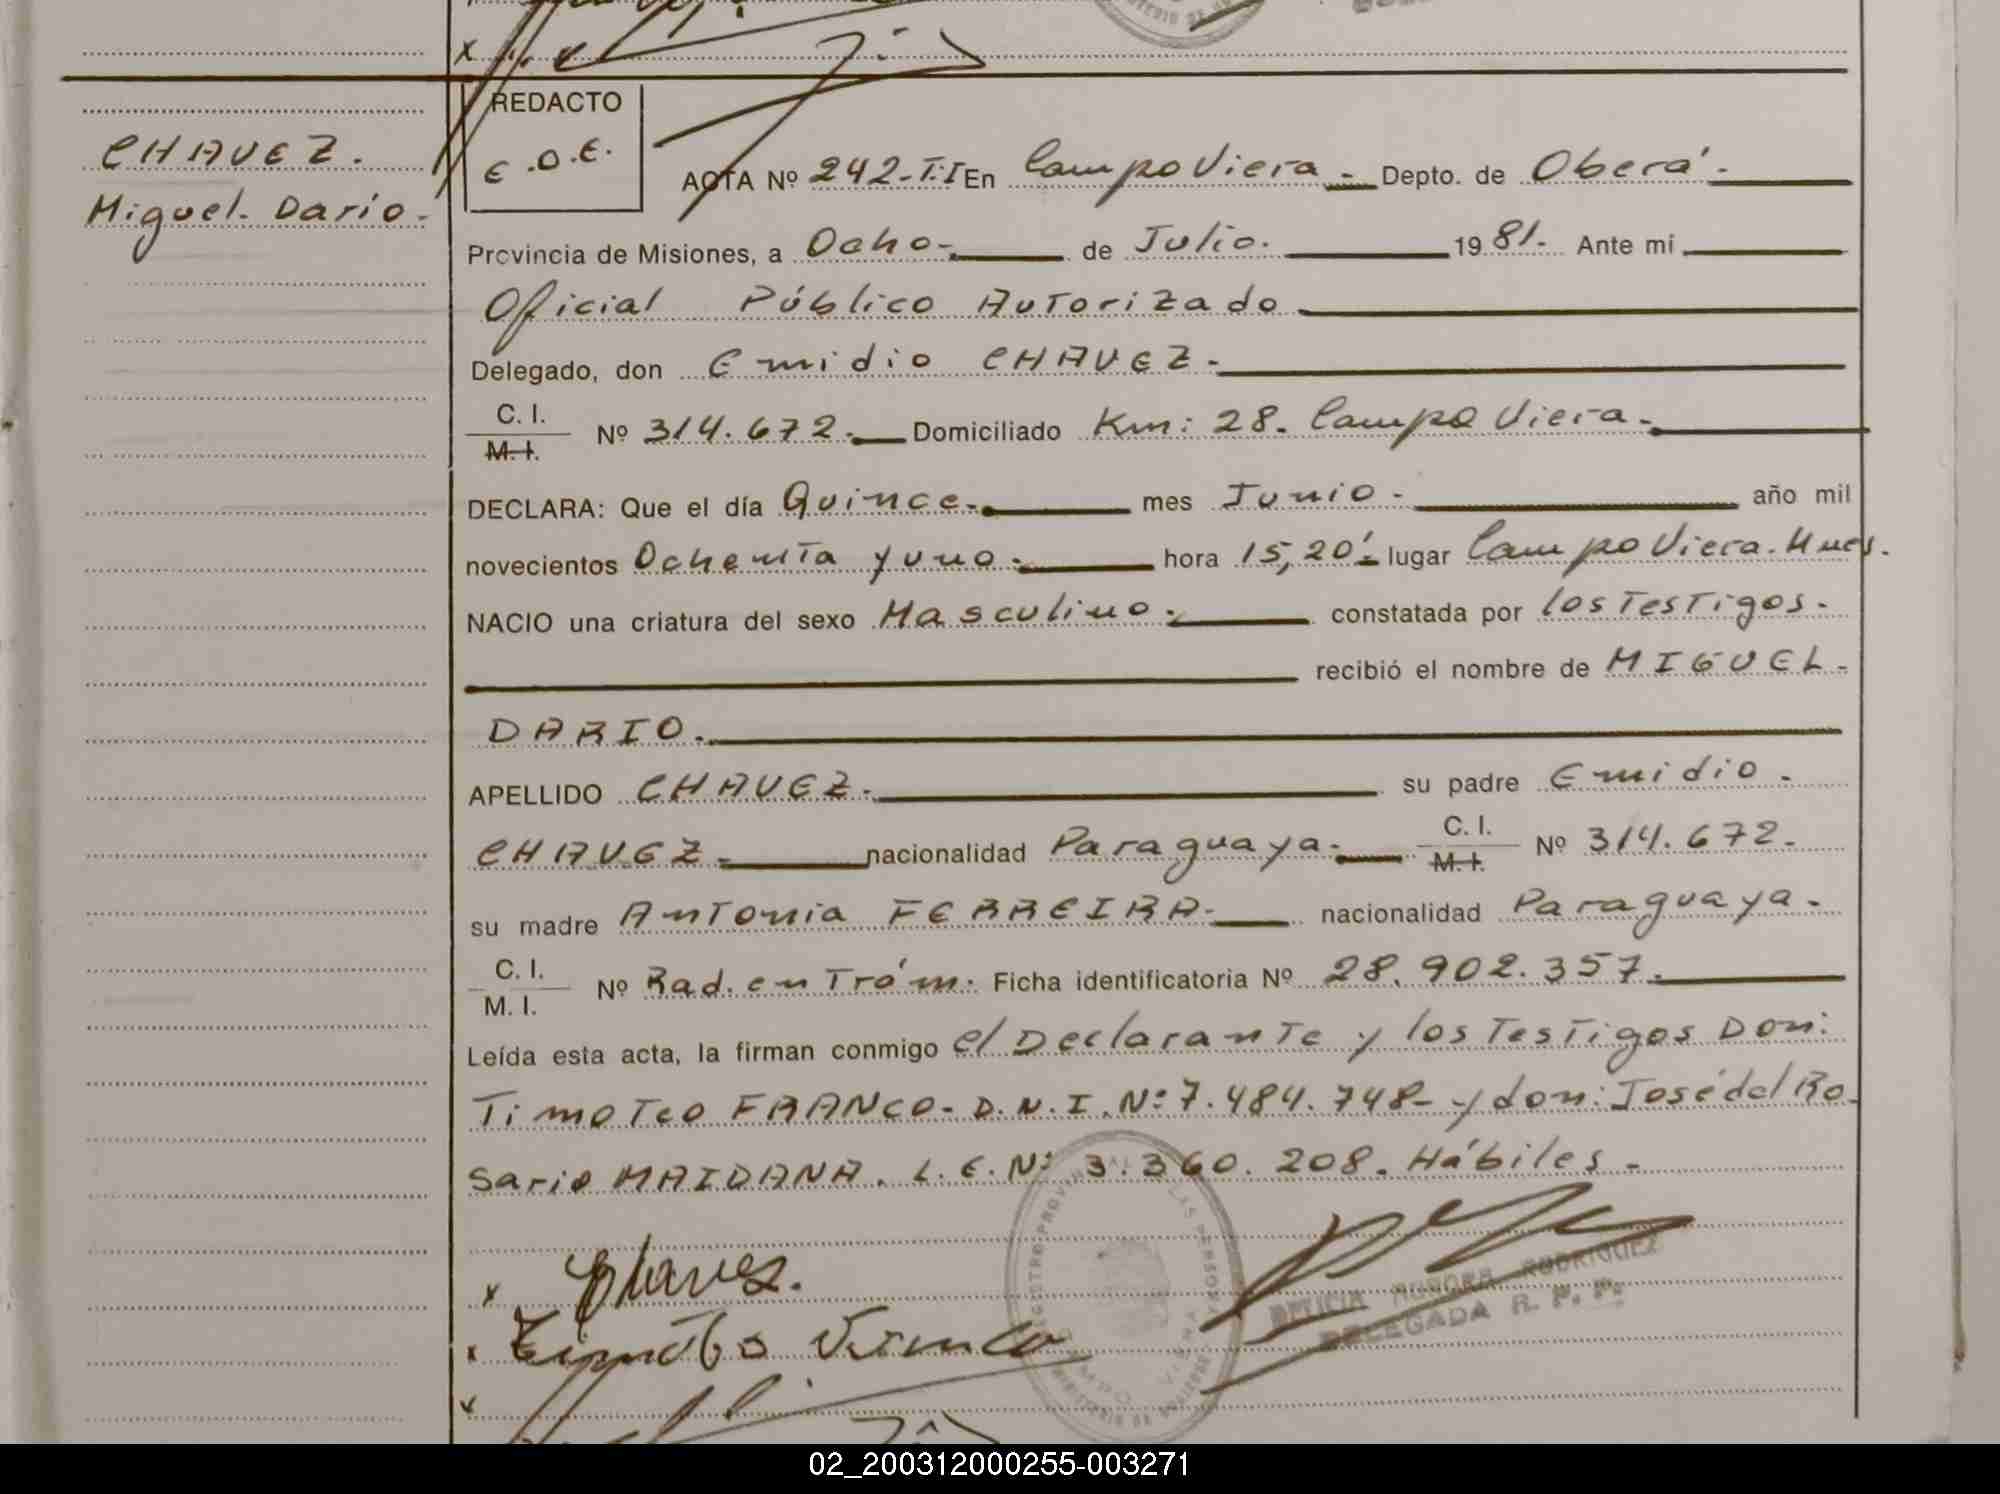 CHAVEZ.
Miguel. Darío.-
REDACTO
E.O.E.
ACTA Nº 242-T.I En Campo Viera.- Depto. de Oberá.-
Provincia de Misiones, a Ocho.- de Julio. 1981.- Ante mí
Oficial Público Autorizado
Delegado, don Emidio CHAVEZ.-
C. I.
M. I. Nº 314.672.- Domiciliado Km: 28. Campo Viera.-
DECLARA: Que el día Quince.- mes Junio.- año mil
novecientos Ochenta y uno.- hora 15,20'.- lugar Campo Viera. Mnes.
NACIO una criatura del sexo Masculino.- constatada por los Testigos.-
recibió el nombre de MIGUEL.-
DARIO.-
APELLIDO CHAVEZ.- su padre Emidio.-
CHAVEZ.- nacionalidad Paraguaya.- C. I.
M. I. Nº 314.672.-
su madre Antonia FERREIRA.- nacionalidad Paraguaya.-
C. I.
M. I. Nº Rad. en Trám. Ficha identificatoria Nº 28.902.357.-
Leída esta acta, la firman conmigo el Declarante y los Testigos Don:
Timoteo FRANCO- D.N.I. Nº: 7.484.748- y don: José del Ro-
sario MAIDANA. L.E. Nº: 3.360.208. Hábiles.-
x Chavez.
x
x
REGISTRO PROVINCIAL LAS PERSONAS
CAMPO VIERA
MINISTERIO DE GOBIERNO
AURORA RODRIGUEZ
DELEGADA R. P. P.
02_200312000255-003271